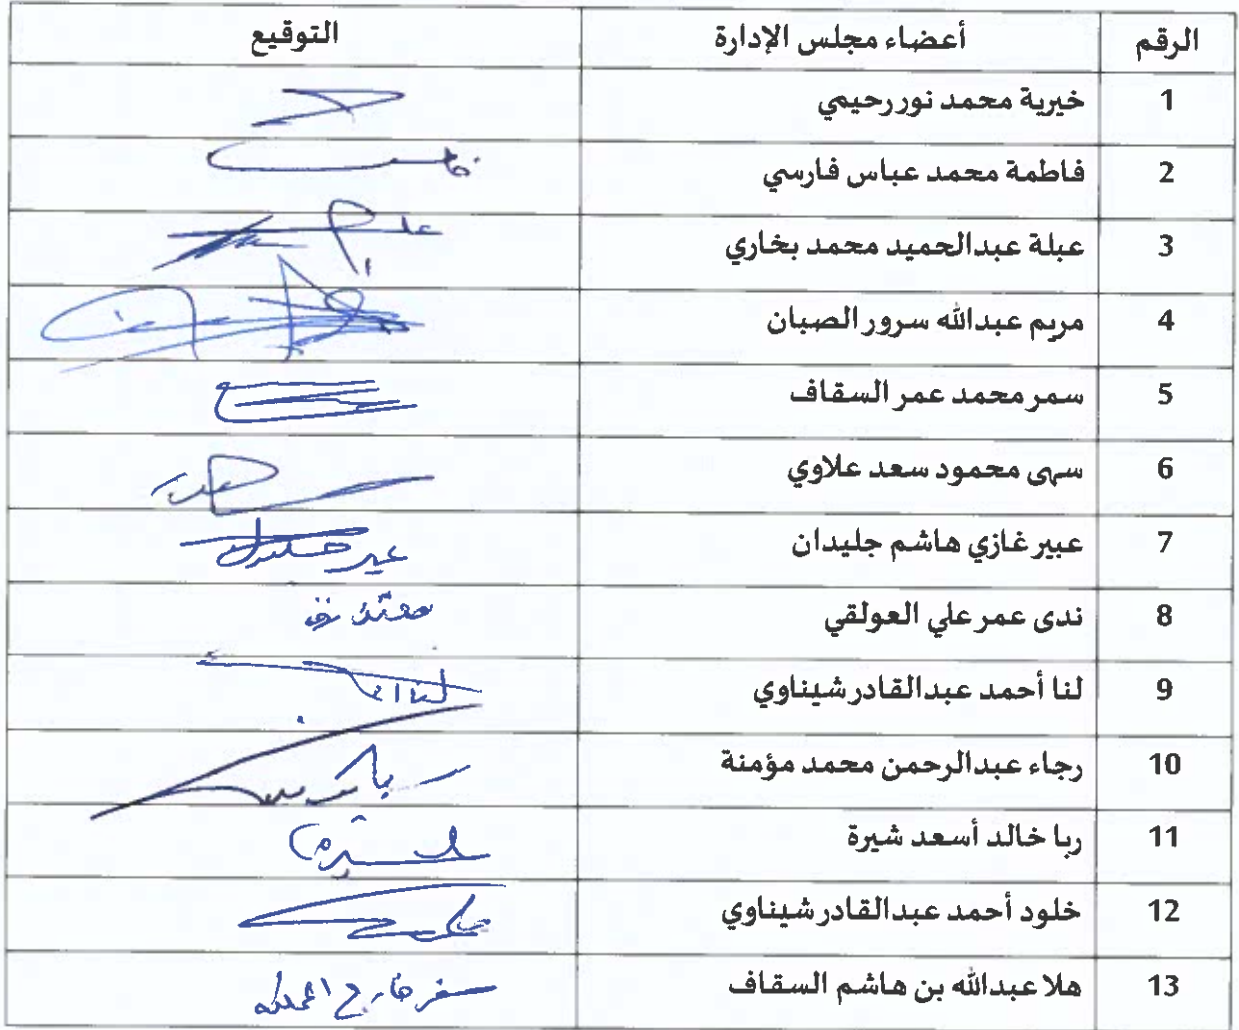 الرقم أعضاء مجلس الإدارة التوقيع
1 خيرية محمد نور رحيمي
2 فاطمة محمد عباس فارسي
3 عبلة عبدالحميد محمد بخاري
4 مريم عبدالله سرور الصبان
5 سمر محمد عمر السقاف
6 سهى محمود سعد علاوي
7 عبير غازي هاشم جليدان
8 ندى عمر علي العولقي
9 لنا أحمد عبدالقادر شيناوي
10 رجاء عبدالرحمن محمد مؤمنة
11 ربا خالد أسعد شيرة
12 خلود أحمد عبدالقادر شيناوي
13 هلا عبدالله بن هاشم السقاف سفر خارج المملكة